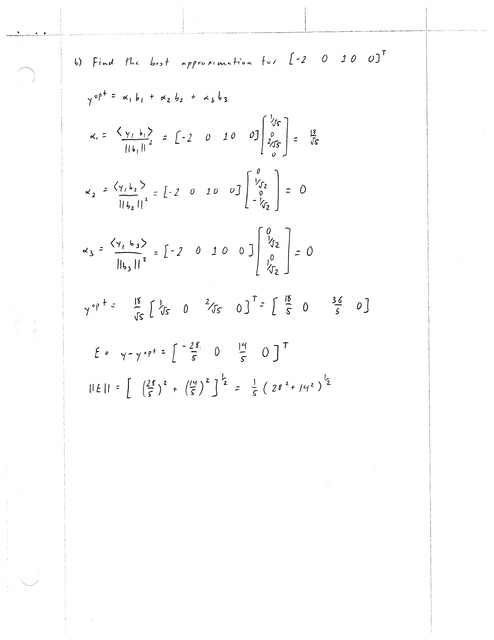 b) Find the best approximation for [-2 0 10 0]ᵀ
yopt = α₁b₁ + α₂b₂ + α₃b₃
α₁ = <y, b₁> / ||b₁||² = [-2 0 10 0] [1/√5 0 2/√5 0] = 18/√5
α₂ = <y, b₂> / ||b₂||² = [-2 0 10 0] [0 1/√2 0 -1/√2] = 0
α₃ = <y, b₃> / ||b₃||² = [-2 0 10 0] [0 1/√2 0 1/√2] = 0
yopt = 18/√5 [1/√5 0 2/√5 0]ᵀ = [18/5 0 36/5 0]
E = y - yopt = [-28/5 0 14/5 0]ᵀ
||E|| = [(28/5)² + (14/5)²]^1/2 = 1/5 (28² + 14²)^1/2